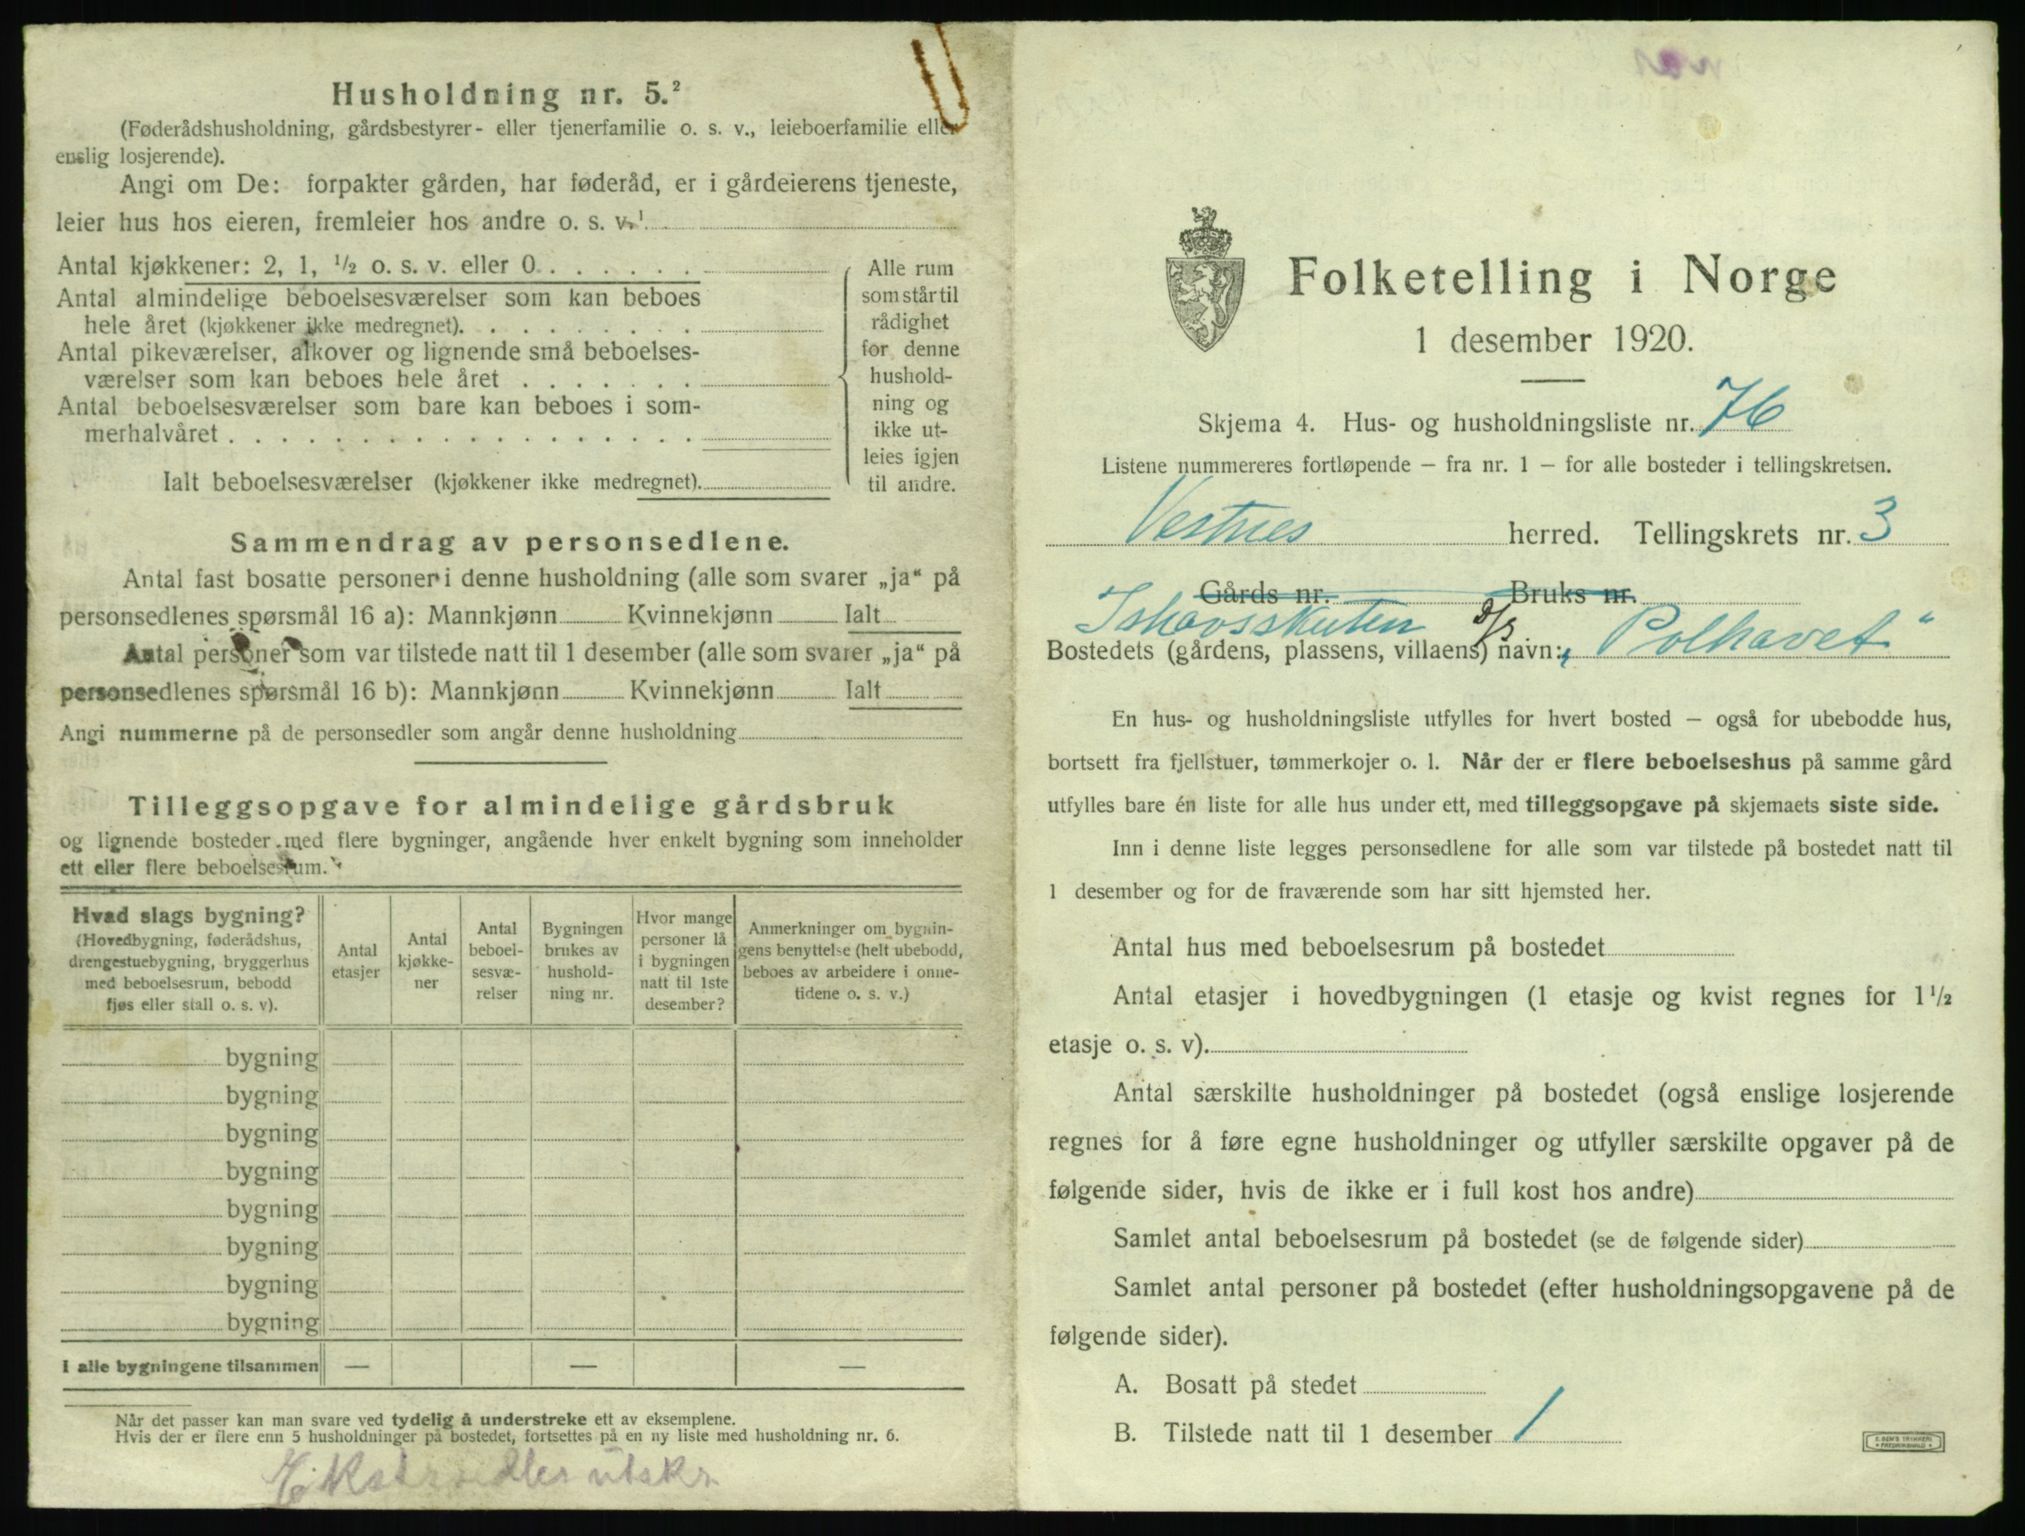 Husholdning nr. 5.²
(Føderådshusholdning, gårdsbestyrer- eller tjenerfamilie o. s. v., leieboerfamilie eller
enslig losjerende).
Angi om De: forpakter gården, har føderåd, er i gårdeierens tjeneste,
leier hus hos eieren, fremleier hos andre o. s. v.¹
Antal kjøkkener: 2, 1, ½ o. s. v. eller 0
Antal almindelige beboelsesværelser som kan beboes
hele året (kjøkkener ikke medregnet).
Antal pikeværelser, alkover og lignende små beboelses-
værelser som kan beboes hele året
Antal beboelsesværelser som bare kan beboes i som-
merhalvåret
Ialt beboelsesværelser (kjøkkener ikke medregnet).
Alle rum
som står til
rådighet
for denne
hushold-
ning og
ikke ut-
leies igjen
til andre.
Sammendrag av personsedlene.
Antal fast bosatte personer i denne husholdning (alle som svarer „ja“ på
personsedlenes spørsmål 16 a): Mannkjønn Kvinnekjønn Ialt
Antal personer som var tilstede natt til 1 desember (alle som svarer „ja“ på
personsedlenes spørsmål 16 b): Mannkjønn Kvinnekjønn Ialt
Angi nummerne på de personsedler som angår denne husholdning
Tilleggsopgave for almindelige gårdsbruk
og lignende bosteder med flere bygninger, angående hver enkelt bygning som inneholder
ett eller flere beboelsesrum.
Hvad slags bygning?
(Hovedbygning, føderådshus,
drengestuebygning, bryggerhus
med beboelsesrum, bebodd
fjøs eller stall o. s. v).
Antal
etasjer
Antal
kjøkke-
ner
Antal
beboel-
sesvæ-
relser
Bygningen
brukes av
hushold-
ning nr.
Hvor mange
personer lå
i bygningen
natt til 1ste
desember?
Anmerkninger om bygnin-
gens benyttelse (helt ubebodd,
beboes av arbeidere i onne-
tidene o. s. v.)
bygning
bygning
bygning
bygning
bygning
bygning
bygning
bygning
I alle bygningene tilsammen — — —
Når det passer kan man svare ved tydelig å understreke ett av eksemplene.
Hvis der er flere enn 5 husholdninger på bostedet, fortsettes på en ny liste med husholdning nr. 6.
Folketelling i Norge
1 desember 1920.
Skjema 4. Hus- og husholdningsliste nr. 76
Listene nummereres fortløpende – fra nr. 1 – for alle bosteder i tellingskretsen.
Vestnes herred. Tellingskrets nr. 3
Gårds nr. Bruks nr.
Ishavsskuten
Bostedets (gårdens, plassens, villaens) navn: „Polhavet“
En hus- og husholdningsliste utfylles for hvert bosted – også for ubebodde hus,
bortsett fra fjellstuer, tømmerkojer o. l. Når der er flere beboelseshus på samme gård
utfylles bare én liste for alle hus under ett, med tilleggsopgave på skjemaets siste side.
Inn i denne liste legges personsedlene for alle som var tilstede på bostedet natt til
1 desember og for de fraværende som har sitt hjemsted her.
Antal hus med beboelsesrum på bostedet
Antal etasjer i hovedbygningen (1 etasje og kvist regnes for 1 ½
etasje o. s. v).
Antal særskilte husholdninger på bostedet (også enslige losjerende
regnes for å føre egne husholdninger og utfyller særskilte opgaver på de
følgende sider, hvis de ikke er i full kost hos andre)
Samlet antal beboelsesrum på bostedet (se de følgende sider)
Samlet antal personer på bostedet (efter husholdningsopgavene på de
følgende sider).
A. Bosatt på stedet
B. Tilstede natt til 1 desember 1